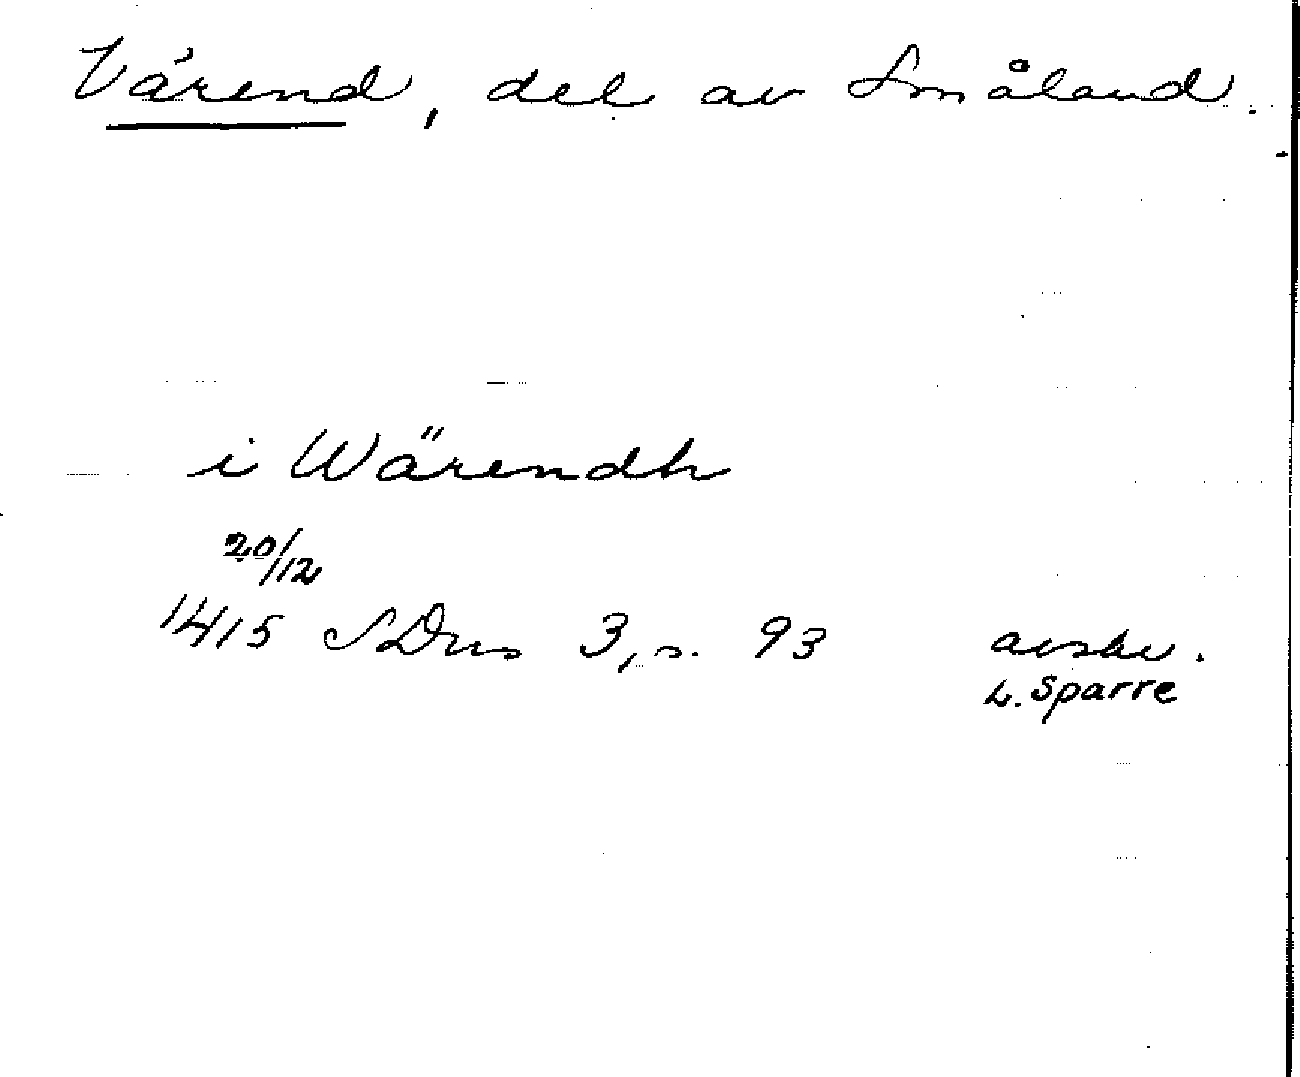 Värend, del av Småland.
i Wärendh
20/12
1415 SDns 3, s. 93 avskr.
L. Sparre